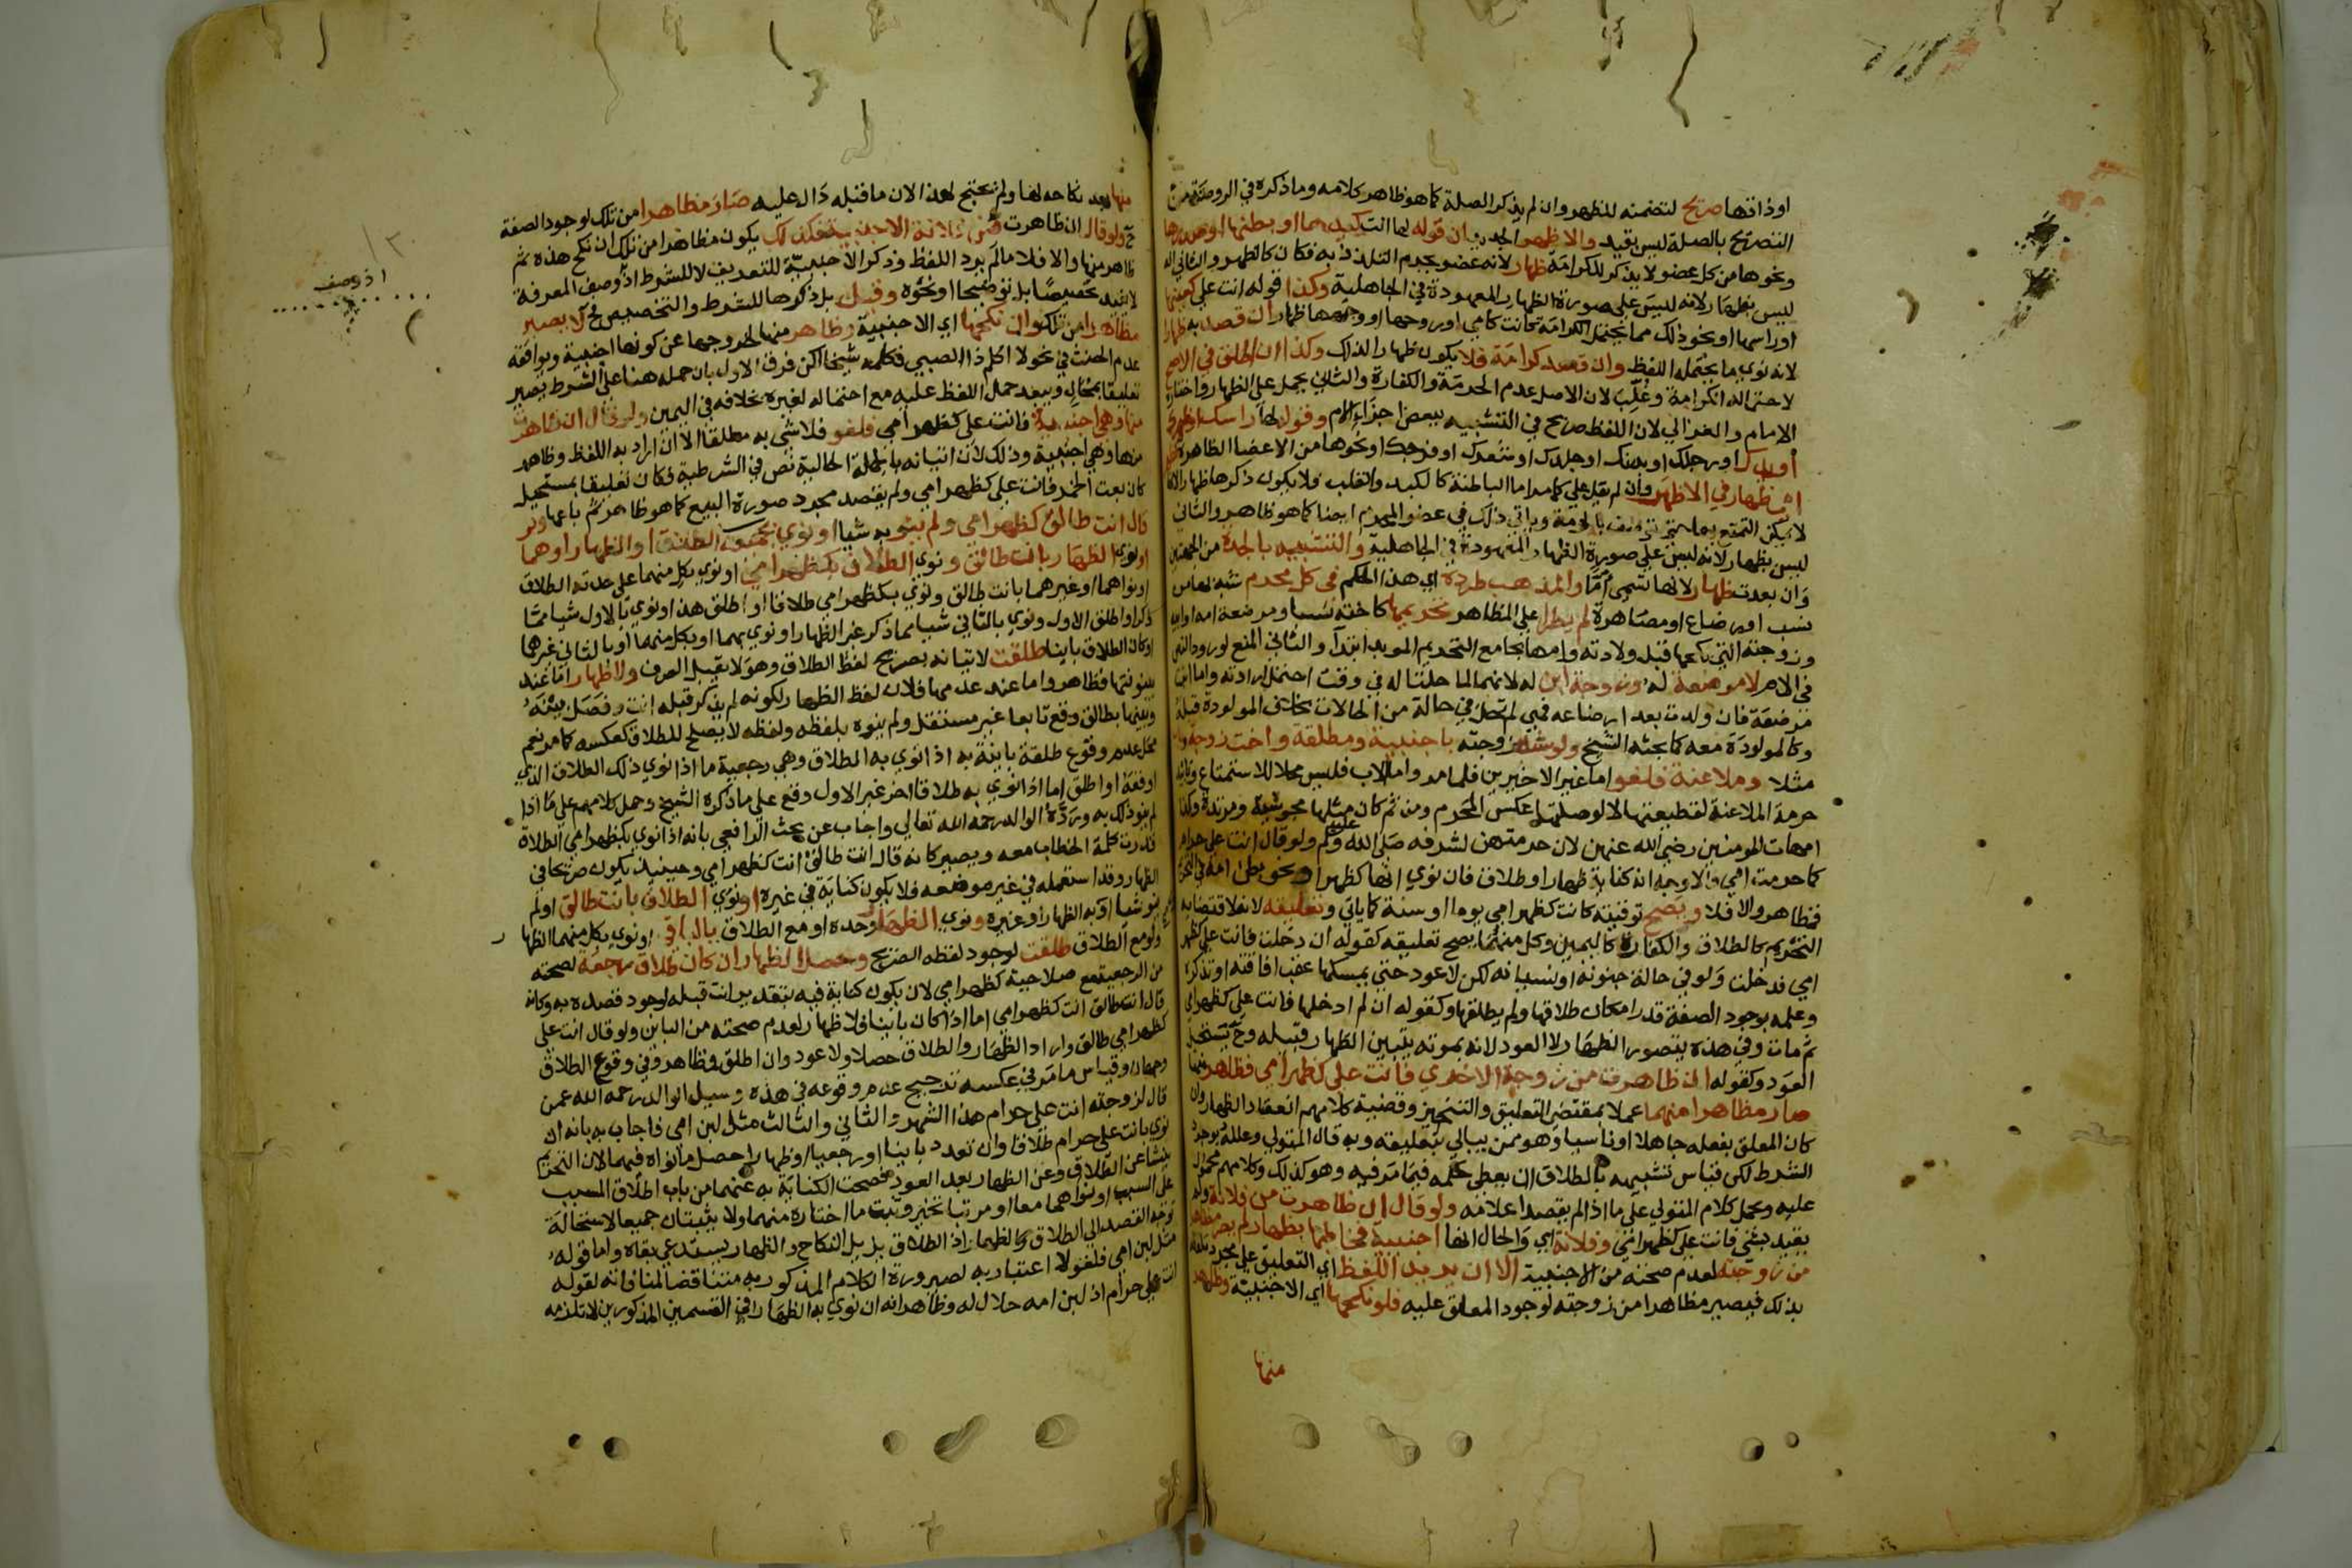 او ذاتها صريح لتضمنه للظهر وان لم يذكر الصلة كما هو ظاهر كلامه وما ذكره في الروضة من
التصريح بالصلة ليس بقيد والاظهر الجديد ان قوله لها انت كيدها او بطنها او صدرها
ونحوها من كل عضو لا يذكر للكرامة ظهار لانه عضو يحرم التلذذ به فكان كالظهر والثاني انه
ليس بظهار لانه ليس على صورة الظهار المعهودة في الجاهلية وكذا قوله انت علي كعينها
او راسها او نحو ذلك مما يحتمل الكرامة كانت كامي او روحها او وجهها ظهار ان قصد به ظهارا
لانه نوى ما يحتمله اللفظ وان قصد كرامة فلا يكون ظهارا لذلك وكذا ان اطلق في الاصح
لاحتماله الكرامة وغلب لان الاصل عدم الحرمة والكفارة والثاني يحمل على الظهار واختاره
الامام والغزالي لان اللفظ صريح في التشبيه ببعض اجزاء الام وقوله لها راسك او ظهرك
او يدك او رجلك او بدنك او جلدك او شعرك او فرجك او نحوها من الاعضا الظاهرة
ظهار في الاظهر وان لم يقل علي كما مر اما الباطنة كالكبد والقلب فلا يكون ذكرها ظهارا لانها
لا يمكن التمتع بها حتى توصف بالحرمة وياتي ذلك في عضو المحرم ايضا كما هو ظاهر والثاني
ليس بظهار لانه ليس على صورة الظهار المعهودة في الجاهلية والتشبيه بالجدة من الجهتين
وان بعدت ظهار لانها تسمى اما والمذهب طرده اي هذا الحكم في كل محرم تشبه بها من
نسب او رضاع او مصاهرة لم يطرا على المظاهر تحريمها كاخته نسبا ومرضعة امه او ابيه
وزوجته التي نكحها قبل ولادته وامها بجامع التحريم المؤبد ابتدا والثاني المنع لورود النص
في الام لا مرضعة له وزوجة ابن له لانهما لما حلتا له في وقت احتمل ارادته واما بنت
مرضعة فان ولدت بعد ارضاعه فهي لم تحل في حالة من الحالات بخلاف المولودة قبله
وكالمولودة معه كما بحثه الشيخ ولو شبه زوجته باجنبية ومطلقة واخت زوجة
مثلا وملاعنة فلغو اما غير الاخيرين فلما مر واما الاب فليس محلا للاستمتاع
حرمة الملاعنة لقطيعتها لا لوصلتها عكس المحرم ومن ثم كان مثلها مجوسية ومرتدة وكذا
امهات المومنين رضي الله عنهن لان حرمتهن لشرفه صلى الله عليه وسلم ولو قال انت علي حرام
كما حرمت امي فالاوجه انه كناية ظهار او طلاق فان نوى انها كظهر او نحو بطن امه في التحريم
فمظاهر والا فلا ويصح توقيته كانت كظهر امي يوما او سنة كما ياتي وتعليقه لانه لاقتضايه
التحريم كالطلاق والكفارة كاليمين وكل منهما يصح تعليقه كقوله ان دخلت فانت علي كظهر
امي فدخلت ولو في حالة جنونه او نسيانه لكن لا عود حتى يمسكها عقب افاقته او تذكره
وعلمه بوجود الصفة قدر امكان طلاقها ولم يطلقها وكقوله ان لم ادخلها فانت علي كظهر امي
ثم مات وفي هذه يتصور الظهار لا العود لانه بموته يتبين الظهار قبيله وح يستحيل
العود وكقوله ان ظاهرت من زوجة الاخرى فانت علي كظهر امي فظاهر منها
صار مظاهرا منهما عملا بمقتضى التعليق والتنجيز وقضية كلامهم انعقاد الظهار وان
كان المعلق بفعله جاهلا او ناسيا وهو ممن يبالي بتعليقه وبه قال المتولي وعلله بوجود
الشرط لكن قياس تشبيهه بالطلاق ان يعطى حكمه فيما مر فيه وهو كذلك وكلامهم محمول
عليه وحمل كلام المتولي على ما اذا لم يقصد اعلامه ولو قال ان ظاهرت من فلانة ولم
يقيد بشي فانت علي كظهر امي وفلانة اي والحال انها اجنبية فخاطبها بظهار لم يصر مظاهرا
من زوجته لعدم صحته من الاجنبية الا ان يريد اللفظ اي التعليق على مجرد تلفظه
بذلك فيصير مظاهرا من زوجته لوجود المعلق عليه فلو نكحها اي الاجنبية وظاهر
منها
منها بعد نكاحه لها ولم يحتج لهذا لان ما قبله دال عليه صار مظاهرا من تلك لوجود الصفة
ح ولو قال ان ظاهرت من فلانة الاجنبية فكذلك يكون مظاهرا من تلك ان نكح هذه ثم
ظاهر منها والا فلا ما لم يرد اللفظ وذكر الاجنبية للتعريف لا للشرط اذ وصف المعرفة
لا يفيد تخصيصا بل توضيحا او نحوه وقيل بل ذكرها للشرط والتخصيص فح لا يصير
مظاهرا من تلك وان نكحها اي الاجنبية وظاهر منها لخروجها عن كونها اجنبية ويوافقه
عدم الحنث في نحو لا اكلم ذا الصبي فكلمه شيخا لكن فرق الاول بان حمله هنا على الشرط يصير
تعليقا بمحال ويبعد حمل اللفظ عليه مع احتماله لغيره بخلافه في اليمين ولو قال ان ظاهرت
منها وهي اجنبية فانت علي كظهر امي فلغو فلا شي به مطلقا الا ان اراد به اللفظ وظاهر
منها وهي اجنبية وذلك لان اتيانه بالجملة الحالية نص في الشرطية فكان تعليقا بمستحيل
كان بعت الخمر فانت علي كظهر امي ولم يقصد مجرد صورة البيع كما هو ظاهر ثم باعها ولو
قال انت طالق كظهر امي ولم ينو به شيا او نوى بمجموعه الطلاق او الظهار او هما
او نوى الظهار بانت طالق ونوى الطلاق بكظهر امي او نوى بكل منهما على حدته الطلاق
او نواهما او غيرهما بانت طالق ونوى بكظهر امي طلاقا او اطلق هذا ونوى بالاول شيا مما
ذكر او اطلق الاول ونوى بالثاني شيا مما ذكر غير الظهار او نوى بهما او بكل منهما او بالثاني غيرها
او كان الطلاق باينا طلقت لاتيانه بصريح لفظ الطلاق وهو لا يقبل الصرف ولا ظهار اما عند
بينونتها فظاهر واما عند عدمها فلان لفظ الظهار لكونه لم يذكر قبله انت وفصل بينه
وبينها بطالق وقع تابعا غير مستقل ولم ينوه بلفظه ولفظه لا يصلح للطلاق كعكسه كما مر نعم
محل عدم وقوع طلقة باينة به اذا نوى به الطلاق وهي رجعية ما اذا نوى ذلك الطلاق الذي
اوقعه او اطلق اما اذا نوى به طلاقا اخر غير الاول وقع على ما ذكره الشيخ وحمل كلامهم على ما اذا
لم ينو ذلك به ورده الوالد رحمه الله تعالى واجاب عن بحث الرافعي بانه اذا نوى بكظهر امي الطلاق
قدرت كلمة الخطاب معه ويصير كانه قال انت طالق انت كظهر امي وحينيذ يكون صريحا في
الظهار وقد استعمله في غير موضعه فلا يكون كناية في غيره او نوى الطلاق بانت طالق او لم
ينو شيا او به الظهار او غيره ونوى الظهار وحده او مع الطلاق بالباقي او نوى بكل منهما الظهار
ولو مع الطلاق طلقت لوجود لفظه الصريح وحصل الظهار ان كان طلاق رجعة لصحته
من الرجعية مع صلاحية كظهر امي لان يكون كناية فيه بتقدير انت قبله لوجود قصده به وكانه
قال انت طالق انت كظهر امي اما اذا كان باينا فلا ظهار لعدم صحته من الباين ولو قال انت علي
كظهر امي طالق واراد الظهار والطلاق حصلا ولا عود وان اطلق فمظاهر وفي وقوع الطلاق
وجهان وقياس ما مر في عكسه ترجيح عدم وقوعه في هذه وسيل الوالد رحمه الله عمن
قال لزوجته انت علي حرام هذا الشهر والثاني والثالث مثل لبن امي فاجاب به بانه ان
نوى بانت علي حرام طلاقا وان تعدد باينا او رجعيا او ظهارا حصل ما نواه فيهما لان التحريم
ينشا عن الطلاق وعن الظهار بعد العود فصحت الكناية به عنهما من باب اطلاق المسبب
على السبب او نواهما معا او مرتبا تخير وثبت ما اختاره منهما ولا يثبتان جميعا لاستحالة
توجه القصد الى الطلاق والظهار اذ الطلاق يزيل النكاح والظهار يستدعي بقاه واما قوله
مثل لبن امي فلغو لا اعتبار به لصيرورة الكلام المذكور به متناقضا لمنافاته لقوله
انت علي حرام اذ لبن امه حلال له وظاهر انه ان نوى به الظهار في القسمين المذكورين لا تلزمه
اذ وصف
١٣٠